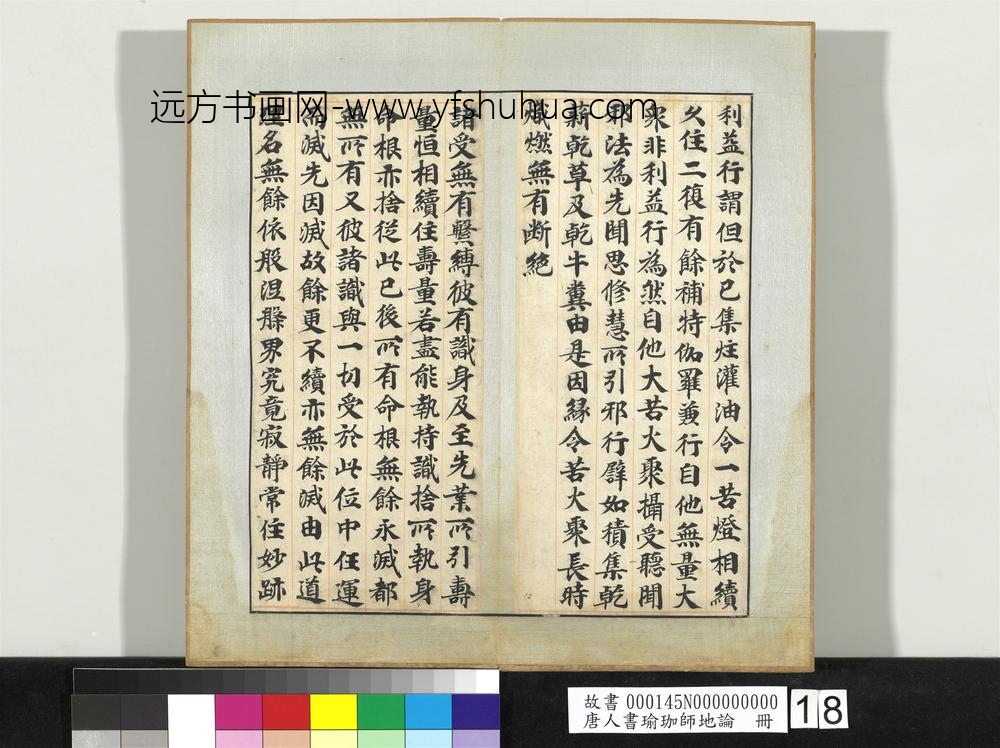 远方书画网-www.yfshuhua.com
利益行謂但於已集炷灌油令一苦燈相續
久住二復有餘補特伽羅兼行自他無量大
衆非利益行為然自他大苦火聚攝受聽聞
邪法為先聞思修慧所引邪行譬如積集乾
薪乾草及乾牛糞由是因緣令苦火聚長時
熾燃無有断絶
諸受無有繫縛彼有識身及至先業所引壽
量恒相續住壽量若盡能執持識捨所執身
命根亦捨從此已後所有命根無餘永滅都
無所有又彼諸識與一切受於此位中任運
而滅先因滅故餘更不續亦無餘滅由此道
理名無餘依般涅槃界究竟寂靜常住妙跡
故書 000145N000000000
唐人書瑜珈師地論 冊
18